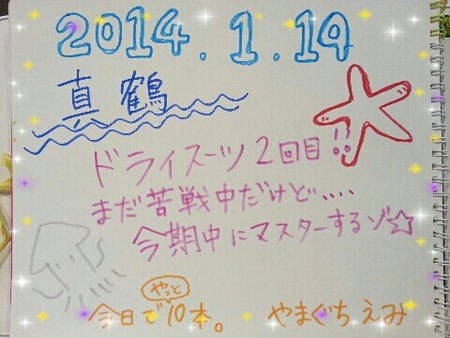 2014.1.19
真鶴
ドライスーツ2回目!!
まだ苦戦中だけど....
今期中にマスターするゾ☆
やっと
今日で10本。 やまぐちえみ